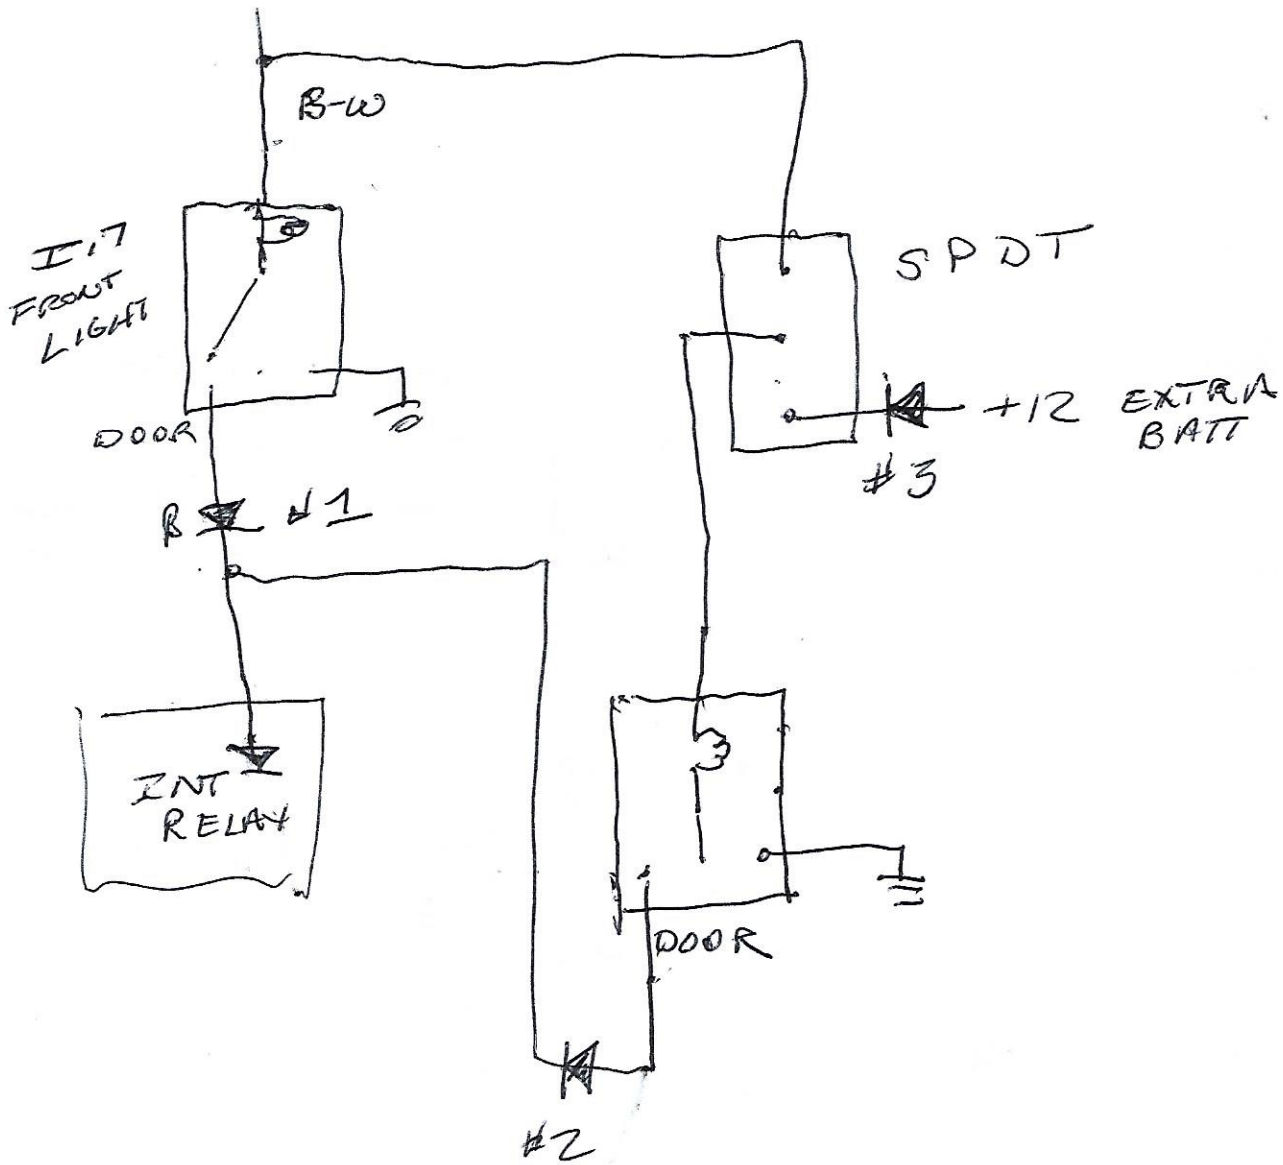 B-W
I.7
FRONT
LIGHT
SPDT
+12 EXTRA
BATT
#3
DOOR
B
#1
INT
RELAY
DOOR
#2